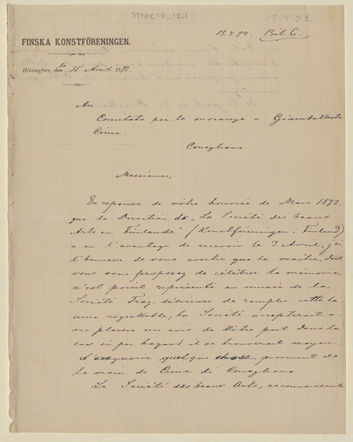 13.4.92. Bil 6.
FINSKA KONSTFÖRENINGEN.
Helsingfors, den 15 Avril 1892.
Au
Comitato per le onoranze a Giambattista
Cima.
Conegliano
Messieurs,
En reponse de vôtre honorée de Mars 1892,
que la Direction de "La Société des beaux
Arts en Finlande" (Konstföreningen i Finland)
a eu l'avantage de recevoir le 3 Avril, j'ai
l'honneur de vous avertir que le maître, dont
vous vous proposez de célébrer la mémoire
n'est point représenté au musée de la
Société. Très désireuse de remplir cette la-
cune regrettable, la Société accepterait a-
vec plaisir un avis de Vôtre part dans le
cas où par hazard il se trouverait moyen
d'acquérir quelque chose provenant de
la main de Cima di Conegliano.
La Société des beaux Arts, reconnaissante